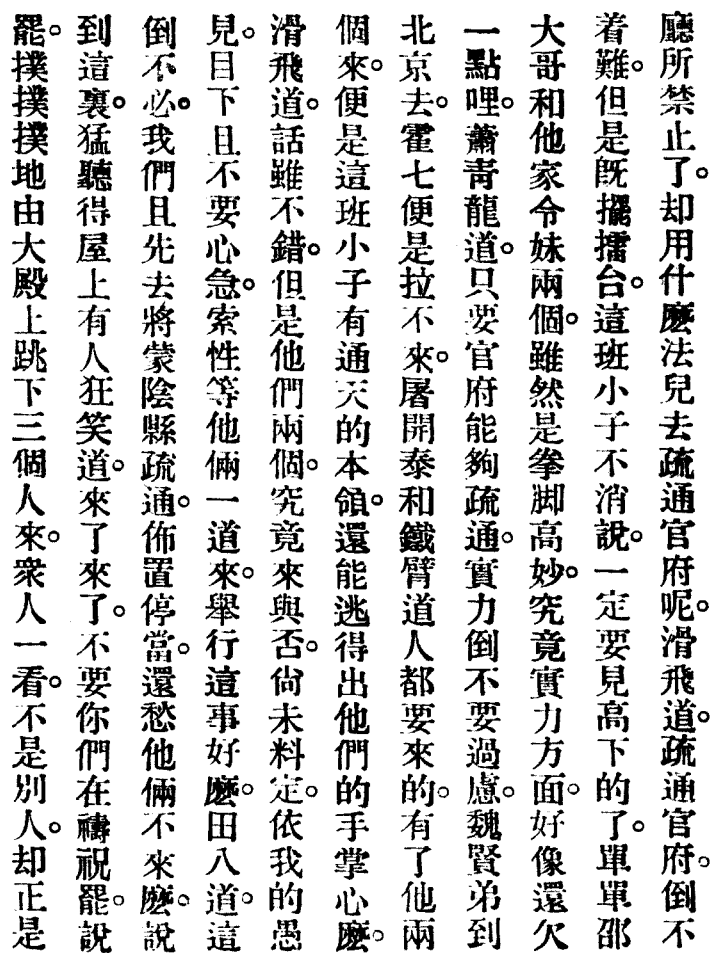 廳所禁止了。却用什麽法兒去疏通官府呢。滑飛道。疏通官府。倒不
着難。但是既擺擂台。這班小子不消說。一定要見高下的了。單單邵
大哥和他家令妹兩個。雖然是拳脚高妙。究竟實力方面。好像還欠
一點哩。蕭靑龍道。只要官府能夠疏通。實力倒不要過慮。魏賢弟到
北京去。霍七便是拉不來。屠開泰和鐵臂道人都要來的。有了他兩
個來。便是這班小子有通天的本領。還能逃得出他們的手掌心麽。
滑飛道。話雖不錯。但是他們兩個。究竟來與否。尙未料定。依我的愚
見。目下且不要心急。索性等他倆一道來。舉行這事好麽。田八道。這
倒不必。我們且先去將蒙陰縣疏通。佈置停當。還愁他倆不來麽。說
到這裏。猛聽得屋上有人狂笑道。來了來了。不要你們在禱祝罷。說
罷。撲撲撲地由大殿上跳下三個人來。衆人一看。不是別人。却正是